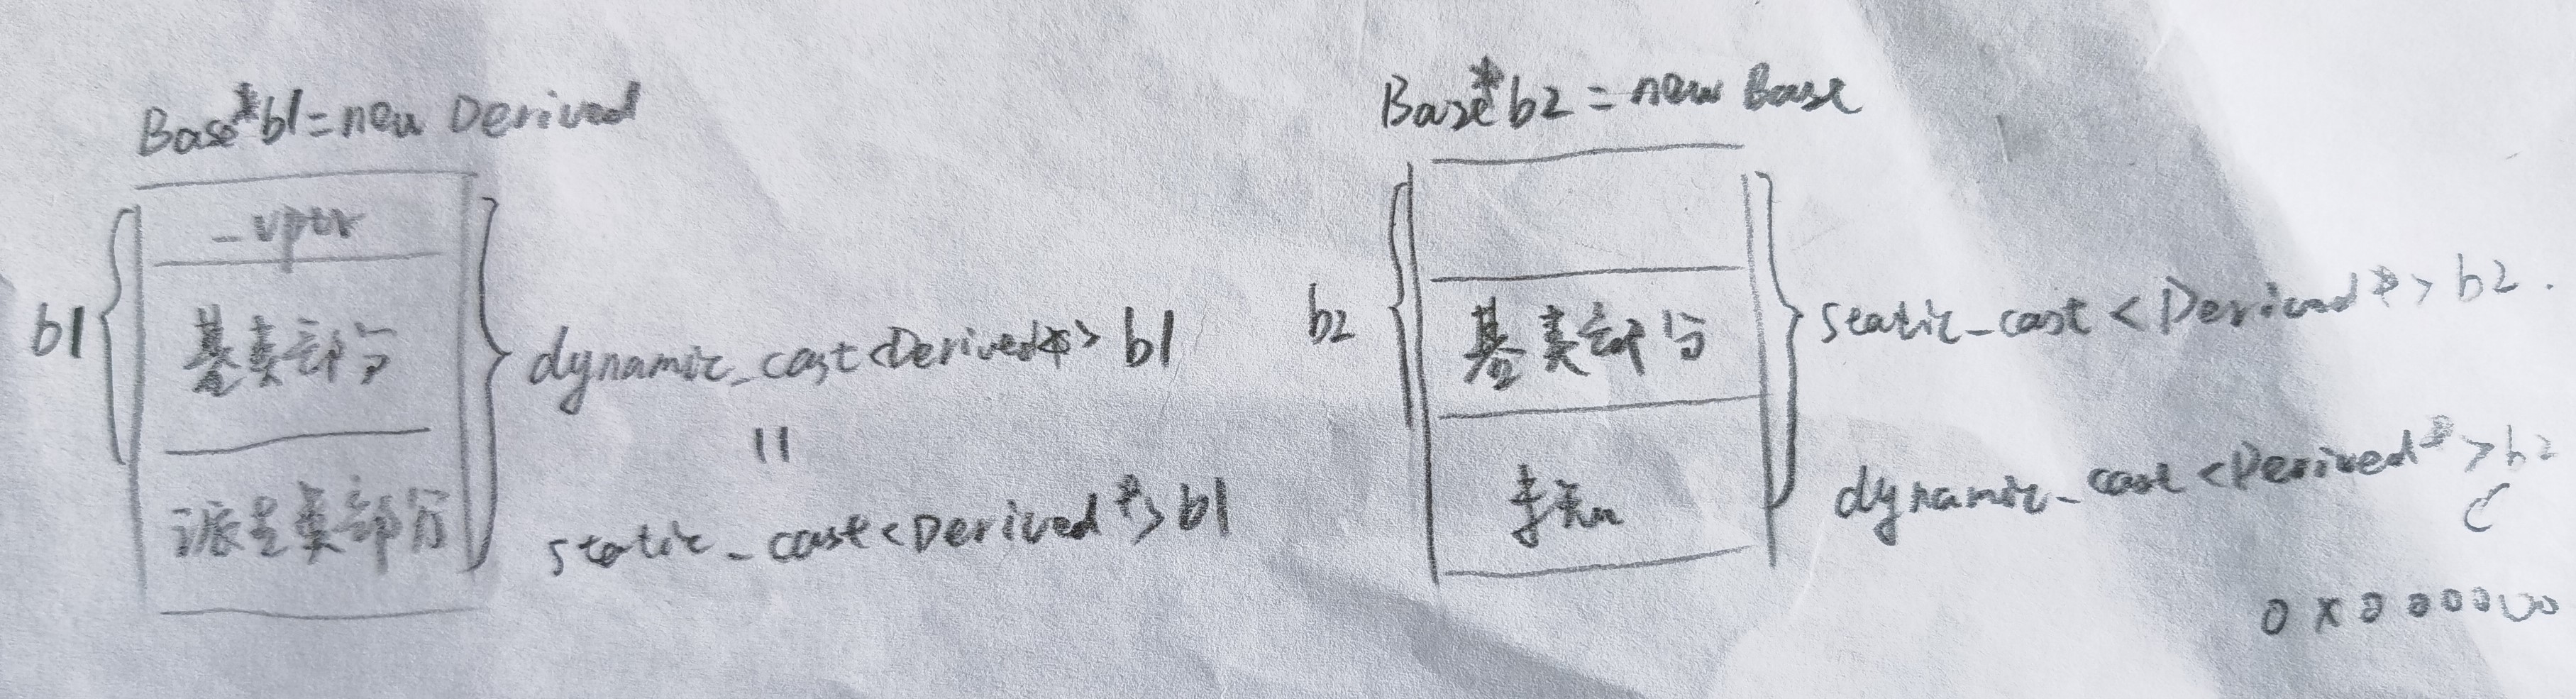 Base*b1=new Derived
_vptr
基类部分
派生类部分
b1
dynamic_cast<Derived*> b1
=
static_cast<Derived*>b1
Base*b2=new Base
基类部分
未知
b2
static_cast<Derived*>b2.
dynamic_cast<Derived*>b2
0x000000